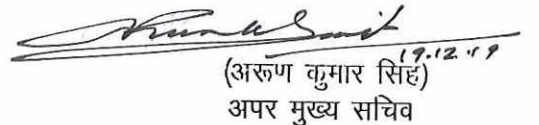 19.12.19
(अरूण कुमार सिंह)
अपर मुख्य सचिव